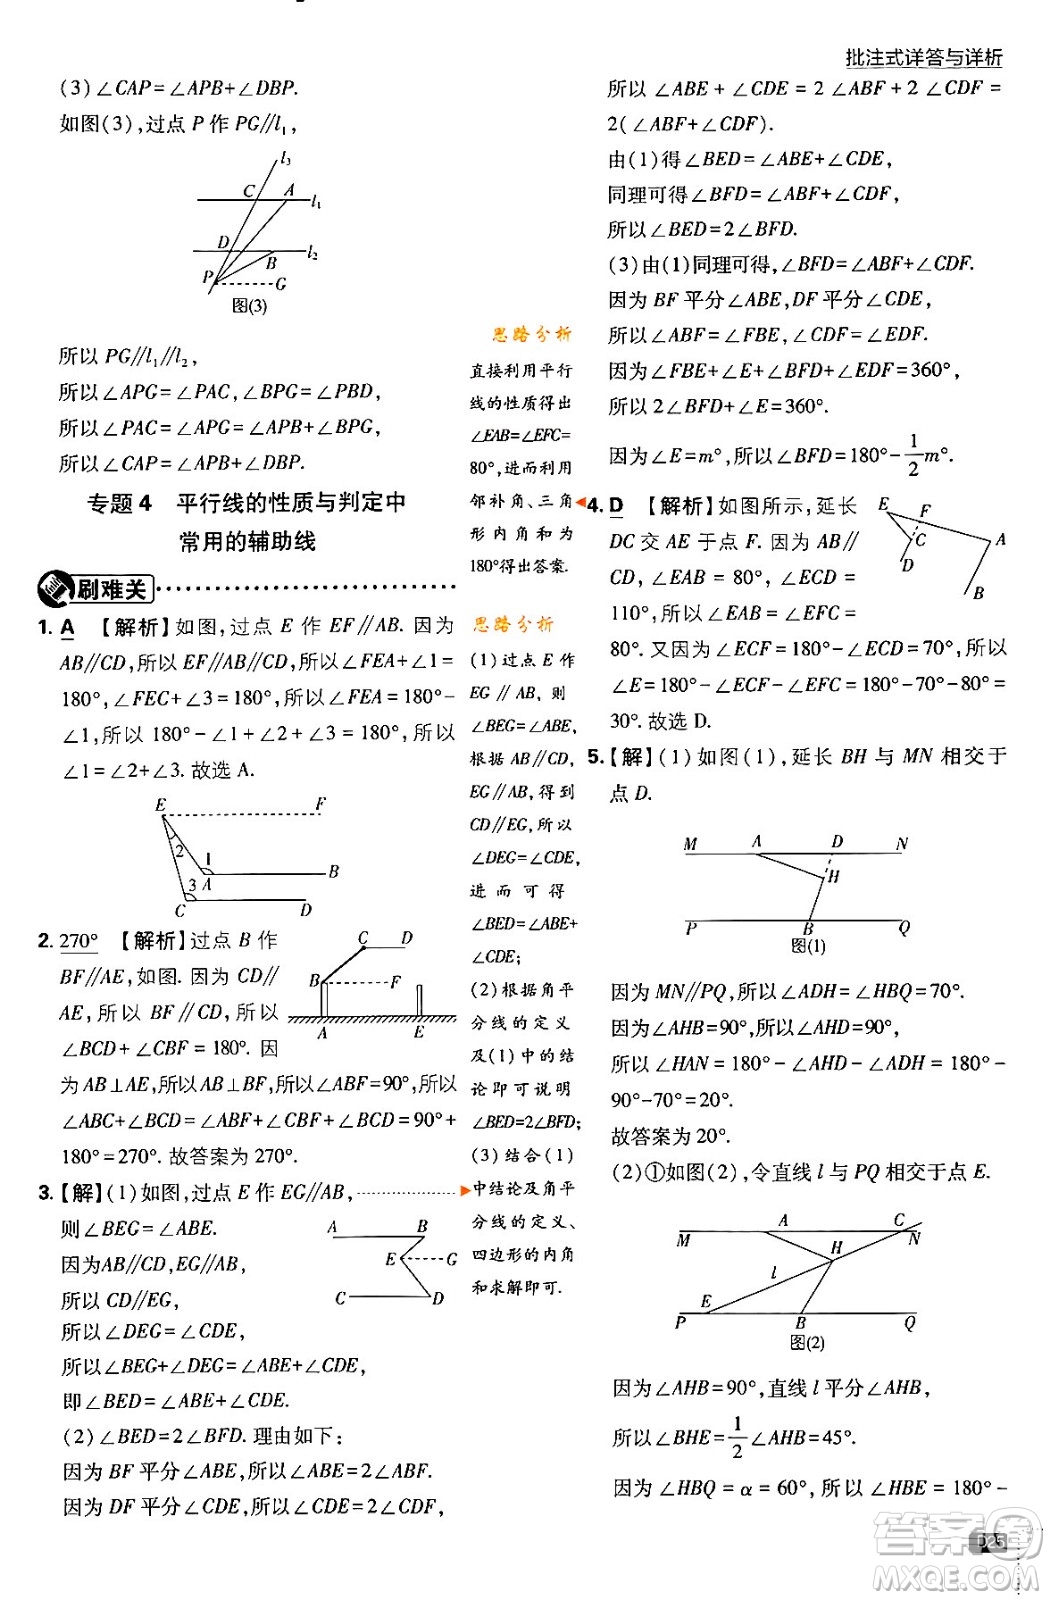 批注式详答与详析
(3)∠CAP=∠APB+∠DBP.
如图(3),过点 P 作 PG∥l₁,
l₃
C A l₁
D B l₂
P G
图(3)
所以 PG∥l₁∥l₂,
所以∠APG=∠PAC,∠BPG=∠PBD,
所以∠PAC=∠APG=∠APB+∠BPG,
所以∠CAP=∠APB+∠DBP.
专题 4 平行线的性质与判定中
常用的辅助线
刷难关
1. A 【解析】如图,过点 E 作 EF∥AB. 因为
AB∥CD,所以 EF∥AB∥CD,所以∠FEA+∠1=
180°,∠FEC+∠3=180°,所以∠FEA=180°-
∠1,所以 180°-∠1+∠2+∠3=180°,所以
∠1=∠2+∠3. 故选 A.
E F
2 1
A B
3
C D
2. 270° 【解析】过点 B 作
BF∥AE,如图. 因为 CD∥
AE,所以 BF∥CD,所以
∠BCD+∠CBF=180°. 因
为 AB⊥AE,所以 AB⊥BF,所以∠ABF=90°,所以
∠ABC+∠BCD=∠ABF+∠CBF+∠BCD=90°+
180°=270°. 故答案为 270°.
C D
B F
A E
3.【解】(1)如图,过点 E 作 EG∥AB,
则∠BEG=∠ABE.
因为AB∥CD,EG∥AB,
所以 CD∥EG,
所以∠DEG=∠CDE,
所以∠BEG+∠DEG=∠ABE+∠CDE,
即∠BED=∠ABE+∠CDE.
A B
E G
C D
(2)∠BED=2∠BFD. 理由如下:
因为 BF 平分∠ABE,所以∠ABE=2∠ABF.
因为 DF 平分∠CDE,所以∠CDE=2∠CDF,
思路分析
直接利用平行
线的性质得出
∠EAB=∠EFC=
80°,进而利用
邻补角、三角
形内角和为
180°得出答案.
思路分析
(1)过点 E 作
EG∥AB,则
∠BEG=∠ABE,
根据 AB∥CD,
EG∥AB,得到
CD∥EG,所以
∠DEG=∠CDE,
进而可得
∠BED=∠ABE+
∠CDE;
(2)根据角平
分线的定义
及(1)中的结
论即可说明
∠BED=2∠BFD;
(3)结合(1)
中结论及角平
分线的定义、
四边形的内角
和求解即可.
所以∠ABE+∠CDE=2∠ABF+2∠CDF=
2(∠ABF+∠CDF).
由(1)得∠BED=∠ABE+∠CDE,
同理可得∠BFD=∠ABF+∠CDF,
所以∠BED=2∠BFD.
(3)由(1)同理可得,∠BFD=∠ABF+∠CDF.
因为 BF 平分∠ABE,DF 平分∠CDE,
所以∠ABF=∠FBE,∠CDF=∠EDF.
因为∠FBE+∠E+∠EDF+∠BFD=360°,
所以 2∠BFD+∠E=360°.
因为∠E=m°,所以∠BFD=180°-1/2m°.
4. D 【解析】如图所示,延长
DC 交 AE 于点 F. 因为 AB∥
CD,∠EAB=80°,∠ECD=
110°,所以∠EAB=∠EFC=
80°. 又因为∠ECF=180°-∠ECD=70°,所以
∠E=180°-∠ECF-∠EFC=180°-70°-80°=
30°. 故选 D.
E F
C A
D B
5.【解】(1)如图(1),延长 BH 与 MN 相交于
点 D.
M A D N
H
P B Q
图(1)
因为 MN∥PQ,所以∠ADH=∠HBQ=70°.
因为∠AHB=90°,所以∠AHD=90°,
所以∠HAN=180°-∠AHD-∠ADH=180°-
90°-70°=20°.
故答案为 20°.
(2)①如图(2),令直线 l 与 PQ 相交于点 E.
M A C N
H
l
P E B Q
图(2)
因为∠AHB=90°,直线 l 平分∠AHB,
所以∠BHE=1/2∠AHB=45°.
因为∠HBQ=α=60°,所以∠HBE=180°-
D25
答案圈
MXQE.COM